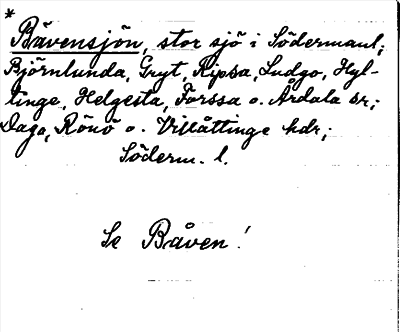 *
Båvensjön, stor sjö i Södermanl;
Björnlunda, Gryt, Ripsa, Ludgo, Hyl-
tinge, Helgesta, Forssa o. Årdala sr;
Daga, Rönö o. Villåttinge hdr;
Söderm. l.
Se Båven!